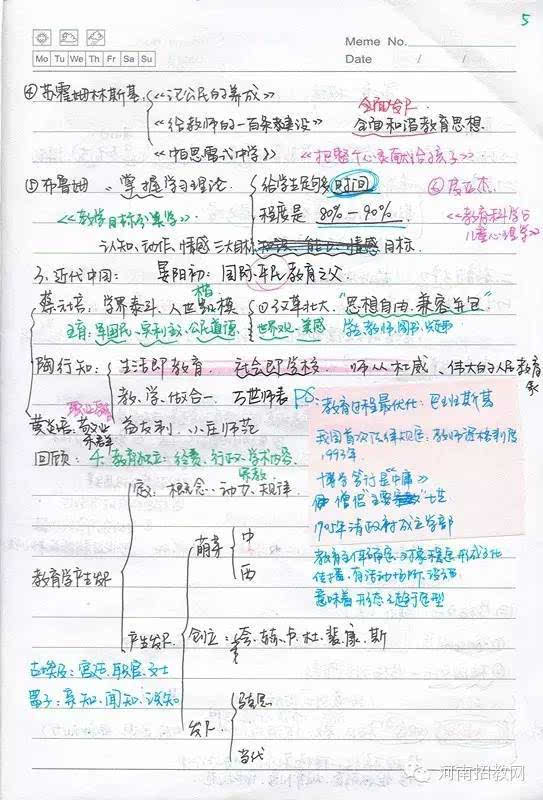 5
Meme No.
Mo Tu We Th Fr Sa Su
Date / /
④苏霍姆林斯基《论公民的养成》
全面发展
《给教师的一百条建议》 全面和谐教育思想
《帕思雷什中学》 《把整个心灵献给孩子》
⑤布鲁姆 掌握学习理论 给学生足够多时间 ⑥皮亚杰
《教学目标分类学》 程度是 80%-90% 《教育科学与
儿童心理学》
认知、动作、情感三大目标 目标
3、近代中国: 晏阳初: 国际平民教育之父
蔡元培: 学界泰斗、人世楷模 ①北大 "思想自由、兼容并包"
五育: 军国民、实利主义、公民道德、世界观、美感
陶行知: 生活即教育 社会即学校 伟大的人民教育家
教、学、做合一 万世师表
职业教育
黄炎培: 敬业乐群
PS: 教育过程最优化: 巴班斯基
我国首次法律规定: 教师资格制度
1993年
博学笃行是《中庸》
1905年清政府成立学部
教育主体确定、对象稳定 形成文化
传播、有活动场所、设施
意味着形态已趋于定型
回顾: 4、教育独立: 经费、行政、学术内容、宗教
教育学产生发展
教: 概念、动力、规律
产生发展
萌芽 中
西
创立: 夸、赫、卢、杜、裴、康、斯
发展
当代
古埃及: 宫廷、职官、文士
墨子: 亲知、闻知、说知
河南招教网